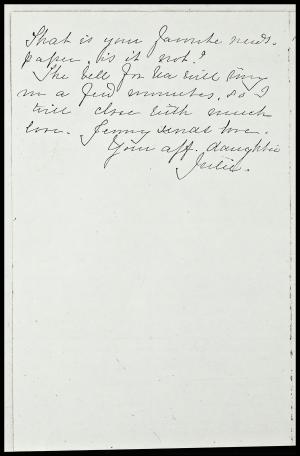 That is your favorite news-
paper, is it not?
The bell for tea will ring
in a few minutes, so I
will close with much
love. Jenny sends love.
Your aff. daughter
Julia.